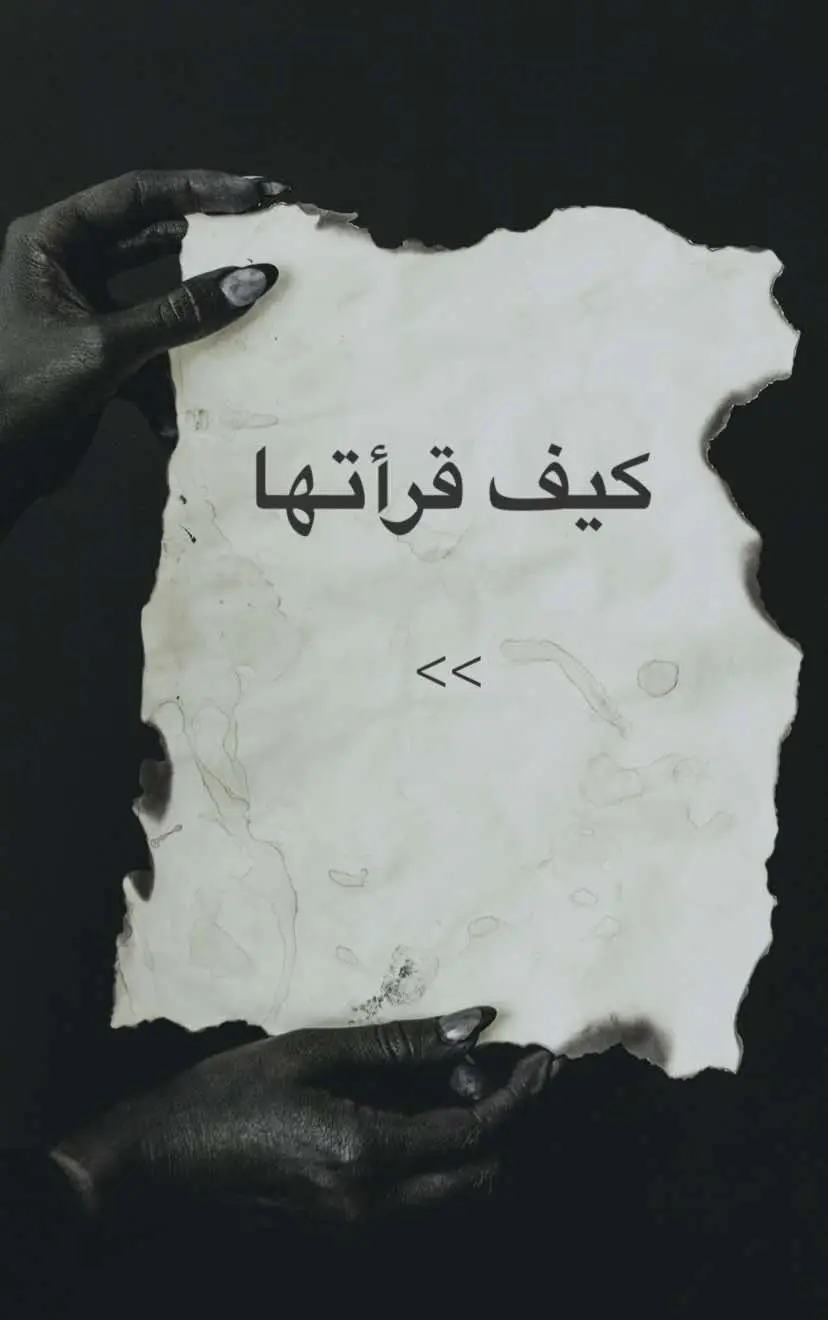 كيف قرأتها
<<